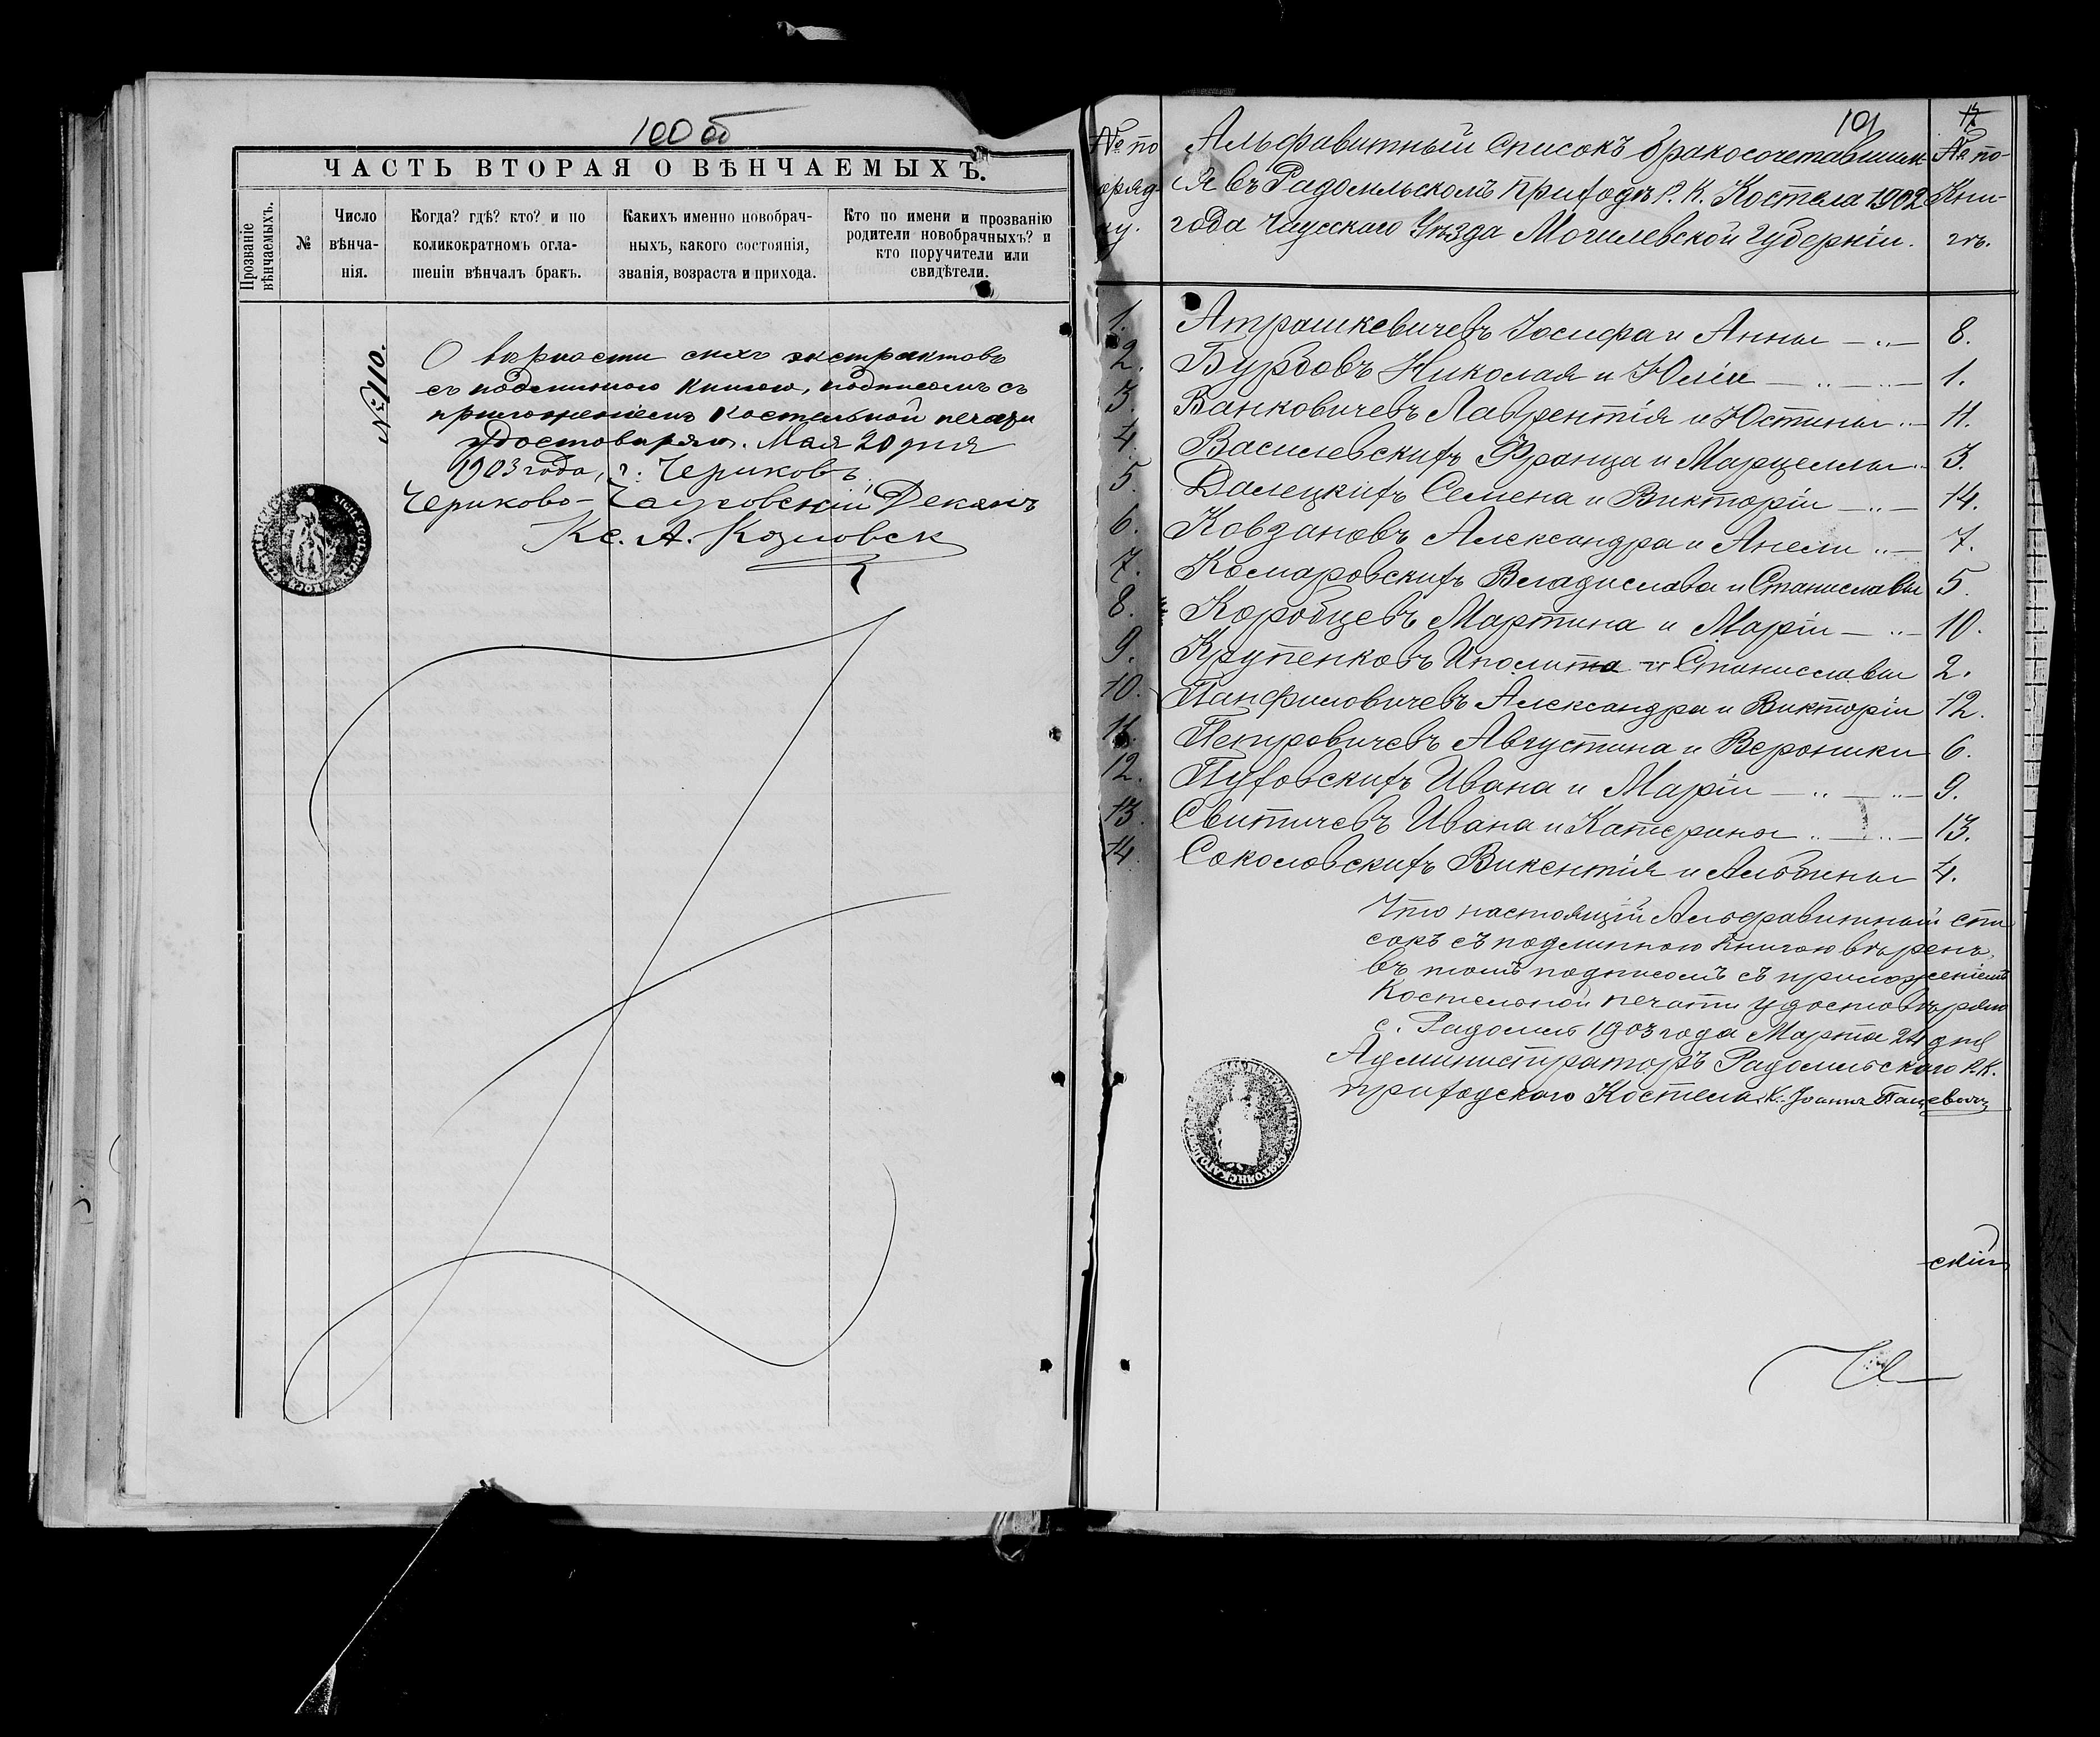 100 об
ЧАСТЬ ВТОРАЯ О ВѢНЧАЕМЫХЪ.
Прозваніе вѣнчаемыхъ.
№
Число вѣнча-нія.
Когда? гдѣ? кто? и по коликократномъ огла-шеніи вѣнчалъ бракъ.
Какихъ именно новобрач-ныхъ, какого состоянія, званія, возраста и прихода.
Кто по имени и прозванію родители новобрачныхъ? и кто поручители или свидѣтели.
№ 110.
О вѣрности сихъ экстрактовъ
съ подлинною книгою, подписомъ съ
приложеніемъ костельной печати
удостовѣряю. Мая 20 дня
1903 года, г. Чериковъ,
Чериково-Чаусовскій Деканъ
Кс. А. Козловск
101
12
№ по
оряд-
ку.
Альфавитный списокъ бракосочетавших-
ся въ Радомльскомъ приходѣ Р. К. Костела 1902
года Чаусскаго Уѣзда Могилевской губерніи.
№ по-
Кни-
гѣ.
1. Атрашкевичевъ Іосифа и Анны 8.
2. Бурбовъ Николая и Юліи 1.
3. Ванковичевъ Лаврентія и Юстины 11.
4. Василевскихъ Франца и Марцеллы 3.
5. Далецкихъ Семена и Викторіи 14.
6. Ковзановъ Александра и Анели 7.
7. Комаровскихъ Владислава и Станиславы 5.
8. Коробцевъ Мартина и Маріи 10.
9. Крупенковъ Иполита и Станиславы 2.
10. Панфиловичевъ Александра и Викторіи 12.
11. Петровичевъ Августина и Вероники 6.
12. Пуховскихъ Ивана и Маріи 9.
13. Свитичевъ Ивана и Катерины 13.
14. Соколовскихъ Викентія и Альбины 4.
Что настоящій Альфавитный спи
сокъ съ подлинною книгою вѣренъ,
въ томъ подписомъ съ приложеніемъ
Костельной печати удостовѣряю
с. Радомль 1903 года Марта 24 дня
Администраторъ Радомльскаго Р. К.
приходскаго Костела К. Іоаннъ Пацевичъ
скій